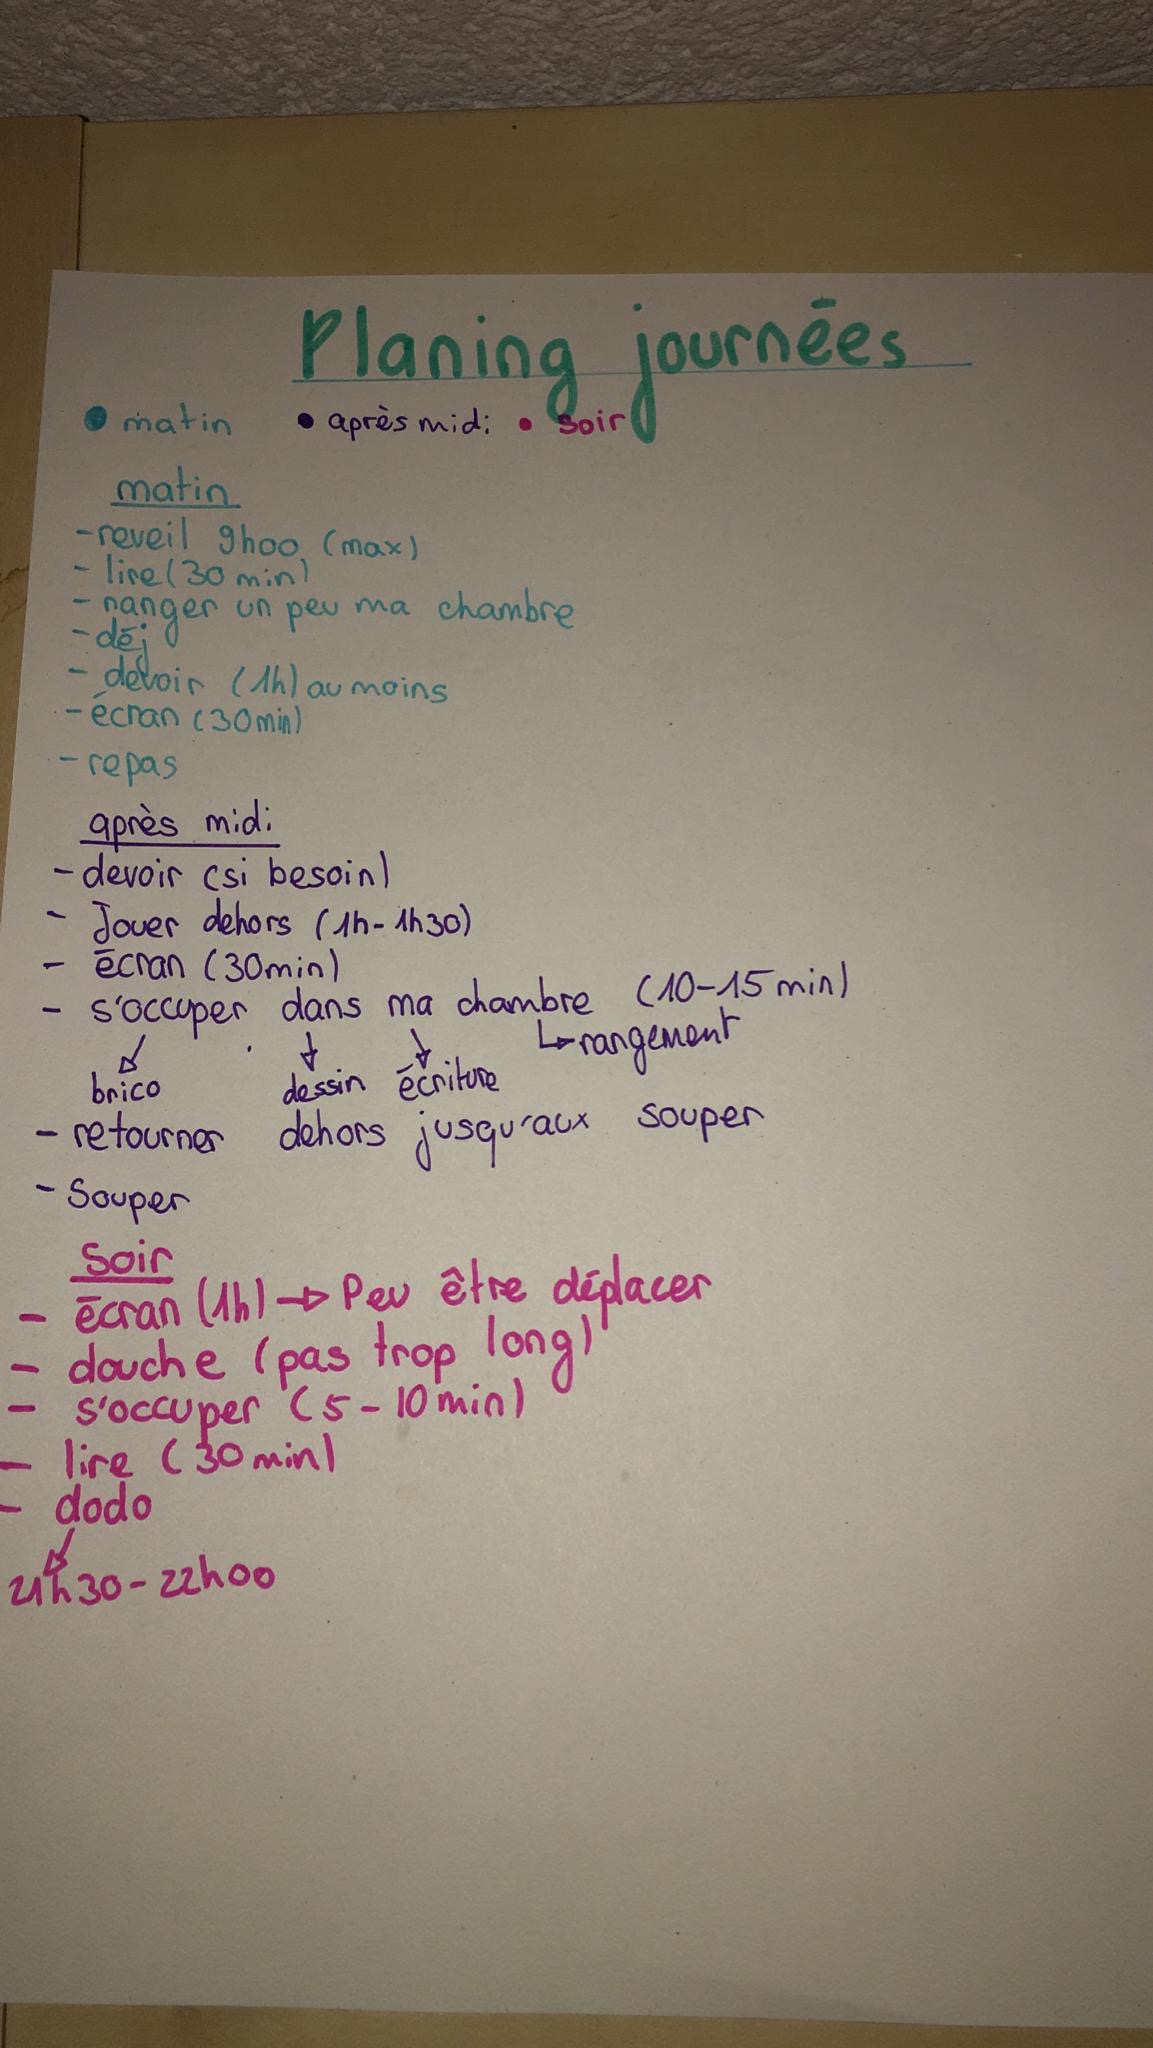 Planing journées
• matin • après midi • soir
matin
- reveil 9h00 (max)
- lire (30 min)
- ranger un peu ma chambre
- déj
- devoir (1h) au moins
- écran (30min)
- repas
après midi
- devoir (si besoin)
- Jouer dehors (1h-1h30)
- écran (30min)
- s'occuper dans ma chambre (10-15 min)
↳ rangement
brico dessin écriture
- retourner dehors jusqu'aux souper
- Souper
Soir
- écran (1h) → Peu être déplacer
- douche (pas trop long)
- s'occuper (5-10min)
- lire (30min)
- dodo
21h30-22h00